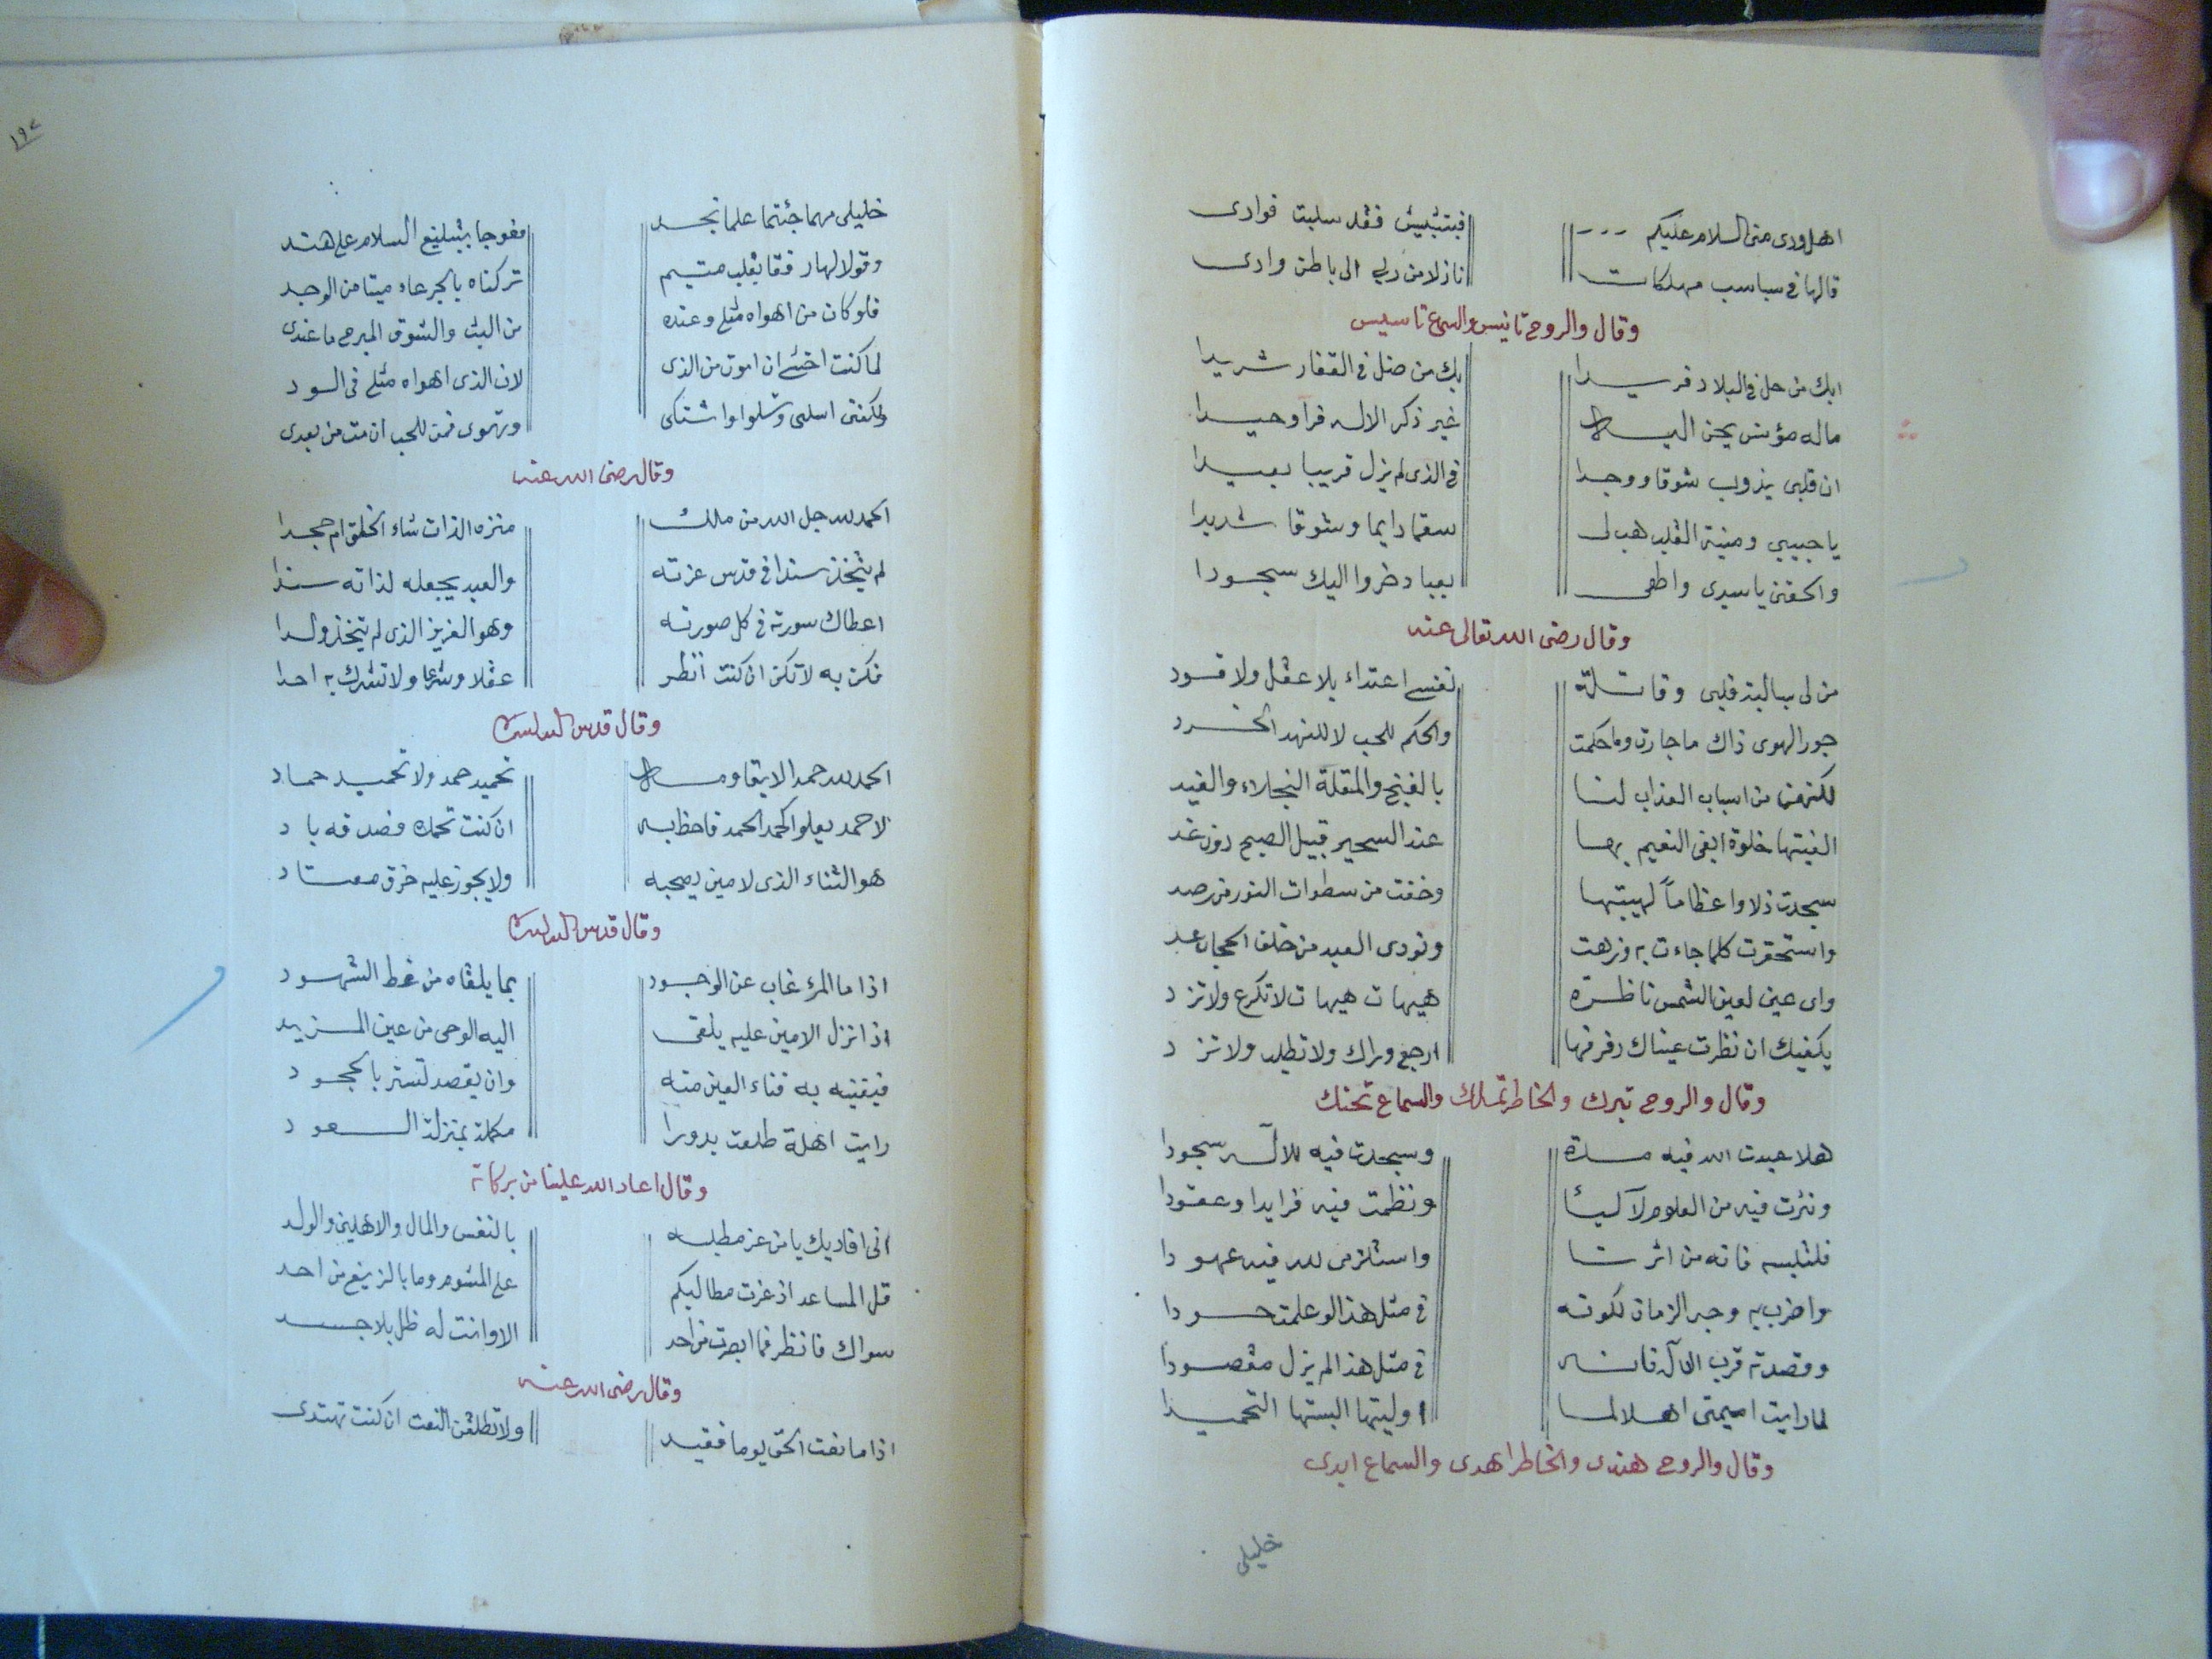 اهل ودى منى السلام عليكم --- فبتثبيتى فقد سلبت فوادى
قالها فى سباسب مهلكات نازلا من ربى الى باطن وادى
وقال والروح تانيس والسماع تاسيس
ابك من حل فى البلاد فريدا بك من ضل فى القفار شريدا
ماله مؤنس يحن اليه غير ذكر الاله فرا وحيدا
ان قلبى يذوب شوقا ووجدا فى الذى لم يزل قريبا بعيدا
يا حبيبي ومنية القلب هب لى سقما دايما وشوقا شديدا
والحقنى يا سيدى بعباد خروا اليك سجودا
وقال رضى الله تعالى عنه
من لى بسالبة قلبى وقاتلة نفسى اعتداء بلا عقل ولا قود
جور الهوى ذاك ما جارت وما حكمت والحكم للحب لا للنهد الخرد
لكنهن من اسباب العذاب لنا بالغنج والمقلة النجلاء والغيد
الفيتها خلوة ابغى النعيم بها عند السحير قبيل الصبح دون غد
سجدت ذلا واعظاماً لهيبتها وخفت من سطوات النور من رصد
واستحقرت كلما جاءت به وزهت ونودى العبد من خلف الحجاب عد
واى عين لعين الشمس ناظرة هيهات هيهات لا تكرع ولا ترد
يكفيك ان نظرت عيناك رفرفها ارجع وراك ولا تطلب ولا تزد
وقال والروح تبرك والخاطر تملك والسماع تحنك
هلا عبدت الله فيه مدة وسجدت فيه للاله سجودا
ونثرت فيه من العلوم لآليئا ونظمت فيه فرايدا وعقودا
فلتلبسه فانه من اثرنا واستلزمن لله فيه عهودا
واضرب به وجه الزمان لكونه فى مثل هذا لو علمت حسودا
وقصدته قرب الاله فانه فى مثل هذا لم يزل مقصودا
لما رايت اميمتى اهلا لما اوليتها البستها التحميدا
وقال والروح هندى والخاطر اهدى والسماع ابدى
خليلى
١٩٢
خليلى مهما جئتما علما نجد فعوجا بتبليغ السلام على هند
وقولا لها رفقا بقلب متيم تركناه بالجرعاء ميتا من الوجد
فلو كان من اهواه مثلى وعنده من البث والشوق المبرح ما عندى
لما كنت اخشى ان اموت من الذى لان الذى اهواه مثلى فى الود
ولكننى اسلى وتسلوا واشتكى وتهوى فمن للحب ان مت من بعدى
وقال رضى الله عنه
الحمد لله جل الله من ملك منزه الذات شاء الخلق ام جحدا
لم يتخذ سندا فى قدس عزته والعبد يجعله لذاته سندا
اعطاك سورته فى كل صورته وهو العزيز الذى لم يتخذ ولدا
فكن به لا تكن ان كنت انظر عقلا وشرعا ولا تشرك به احدا
وقال قدس الله سره
الحمد لله حمدا لا يقاومه تحميد حمد ولا تحميد حماد
لا حمد يعلو الحمد الحمد فاحظ به ان كنت تحمده فصدقه باد
هو الثناء الذى لا مين يصحبه ولا يجوز عليه خرق معتاد
وقال قدس الله سره
اذا ما المرء غاب عن الوجود بما يلقاه من غط الشهود
اذا نزل الامين عليه يلقى اليه الوحى من عين المزيد
فيفنيه به فناء العين منه وان يقصد تستر بالحجود
رايت اهلة طلعت بدورا مكملة بمنزلة السعود
وقال اعاد الله علينا من بركاته
انى افاديك يا من عز مطلبه بالنفس والمال والاهلين والولد
قل المساعد اذ عزت مطالبكم على المشوم وما بالزيغ من احد
سواك فانظر فما ابصرت من احد الا وانت له ظل بلا جسد
وقال رضى الله عنه
اذا ما نعت الحق يوما فقيد ولا تطلقن النعت ان كنت تهتدى